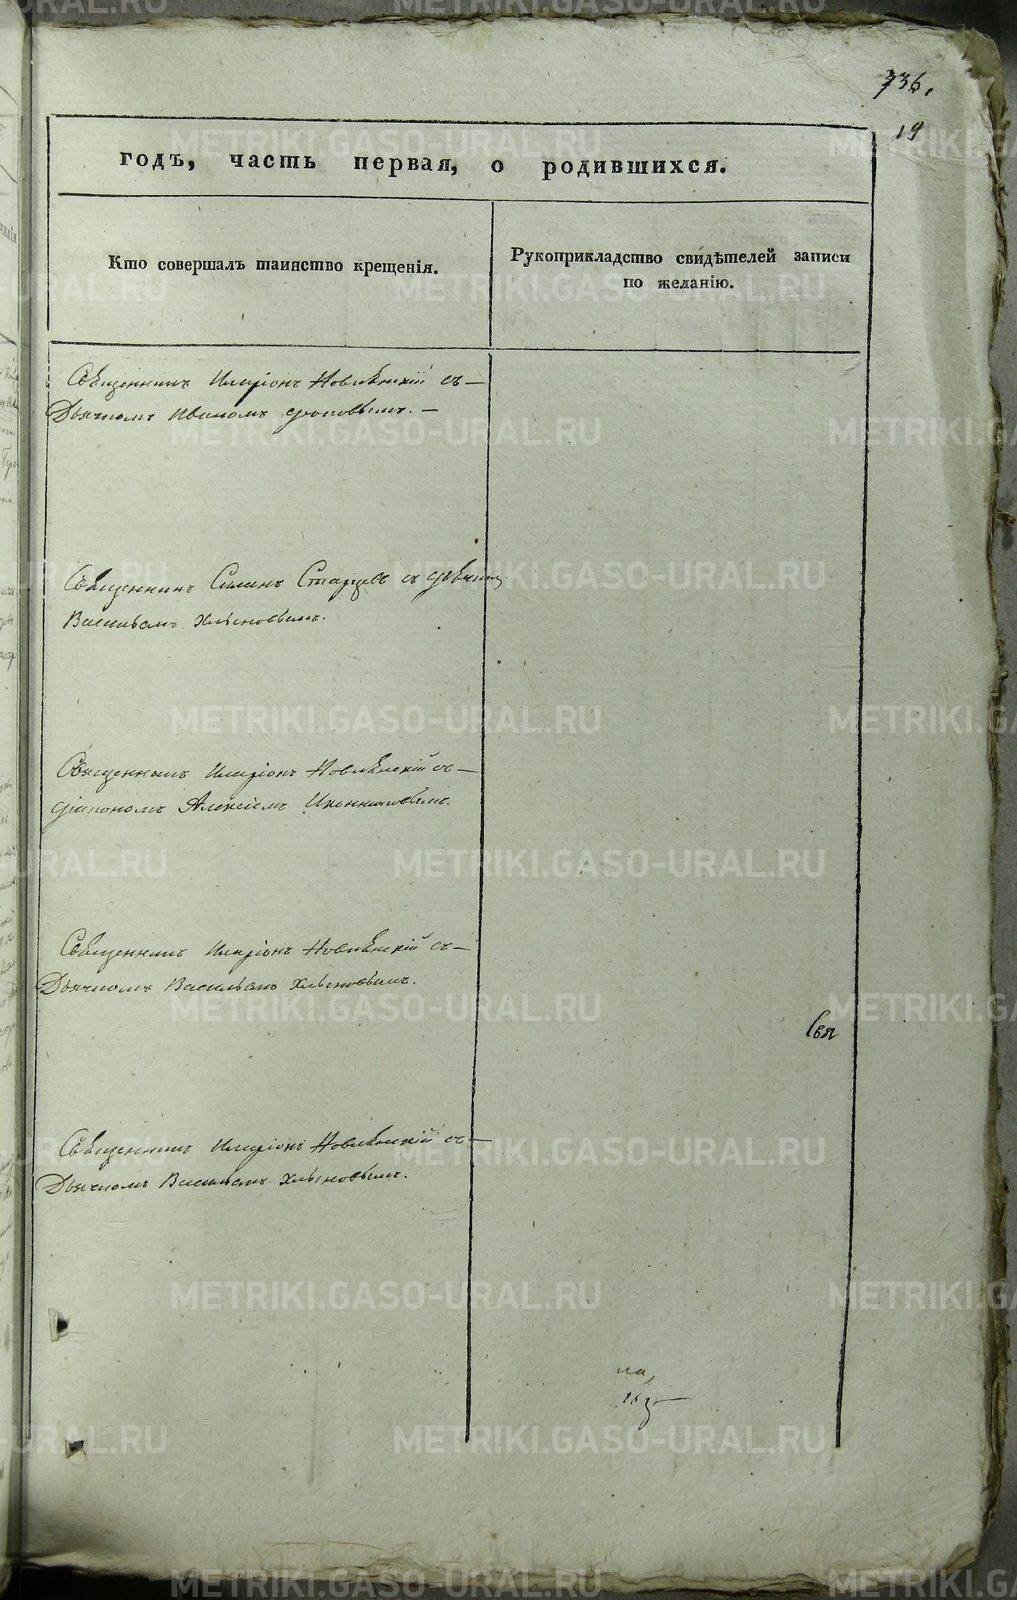 736.
19
годъ, часть первая, о родившихся.
Кто совершалъ таинство крещенія.
Рукоприкладство свидѣтелей записи
по желанію.
Священникъ Иларіонъ Новлянскій съ
Дьячкомъ Иваномъ
Священникъ Силинъ Старцевъ съ
Васильемъ Хлыновымъ.
Священникъ Иларіонъ Новлянскій съ
діакономъ Алексіемъ Иконниковымъ.
Священникъ Иларіонъ Новлянскій съ
Дьячкомъ Васильемъ Хлыновымъ.
Свя
Священникъ Иларіонъ Новлянскій съ
Дьячкомъ Васильемъ Хлыновымъ.
METRIKI.GASO-URAL.RU